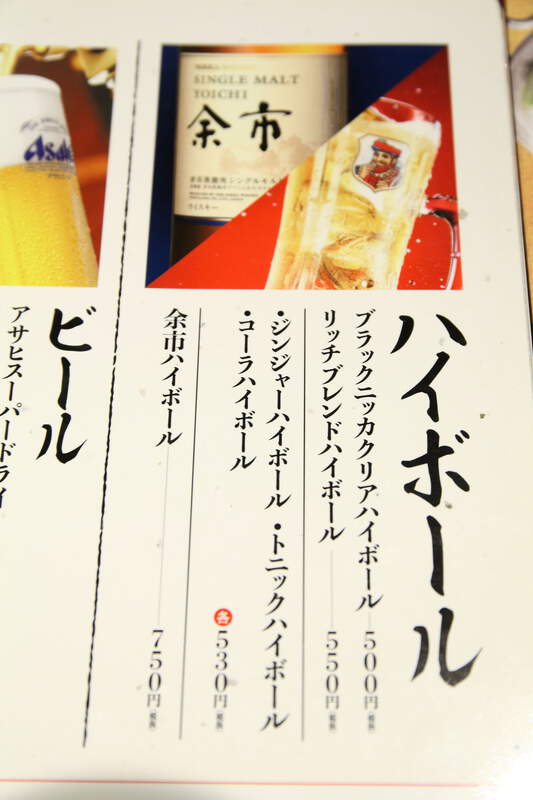 SINGLE MALT
YOICHI
余市
シングルモルト
ウイスキー
Asahi
ハイボール
ブラックニッカクリアハイボール 500円(税抜)
リッチブレンドハイボール 550円(税抜)
・ジンジャーハイボール ・トニックハイボール
・コーラハイボール 各530円(税抜)
余市ハイボール 750円(税抜)
ビール
アサヒスーパードライ